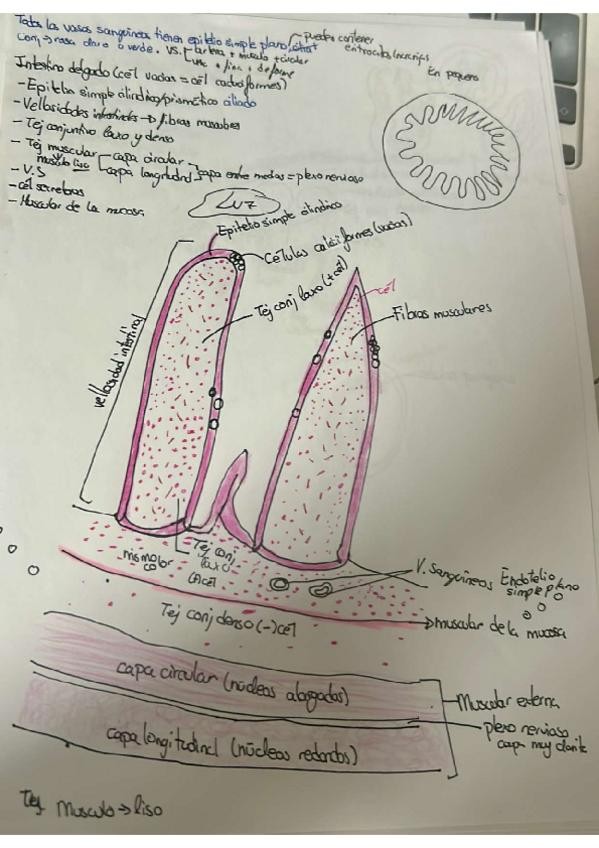 Todos los vasos sanguíneos tienen epitelio simple plano, strat
puedes contener
eritrocitos
conj → rosa claro o verde. VS. arteria + músculo + circular
vena + fina + deforme
Intestino delgado (cél vacías = cél caliciformes)
En pequeño
- Epitelio simple cilíndrico/prismático ciliado
- Vellosidades intestinales → fibras musculares
- Tej conjuntivo laxo y denso
- Tej muscular capa circular
músculo liso capa longitudinal capa entre medias = plexo nervioso
- V.S
- Cél secretoras
- Muscular de la mucosa
Luz
Epitelio simple cilíndrico
Células caliciformes (vacías)
Tej conj laxo (+cél)
cél
Fibras musculares
vellosidad intestinal
Tej conj
laxo
(+cél
mismo color
V. Sanguíneos Endotelio
simple plano
Tej conj denso (-) cél
muscular de la mucosa
capa circular (núcleos alargados)
Muscular externa
plexo nervioso
capa muy
capa longitudinal (núcleos redondos)
Tej Musculo → liso